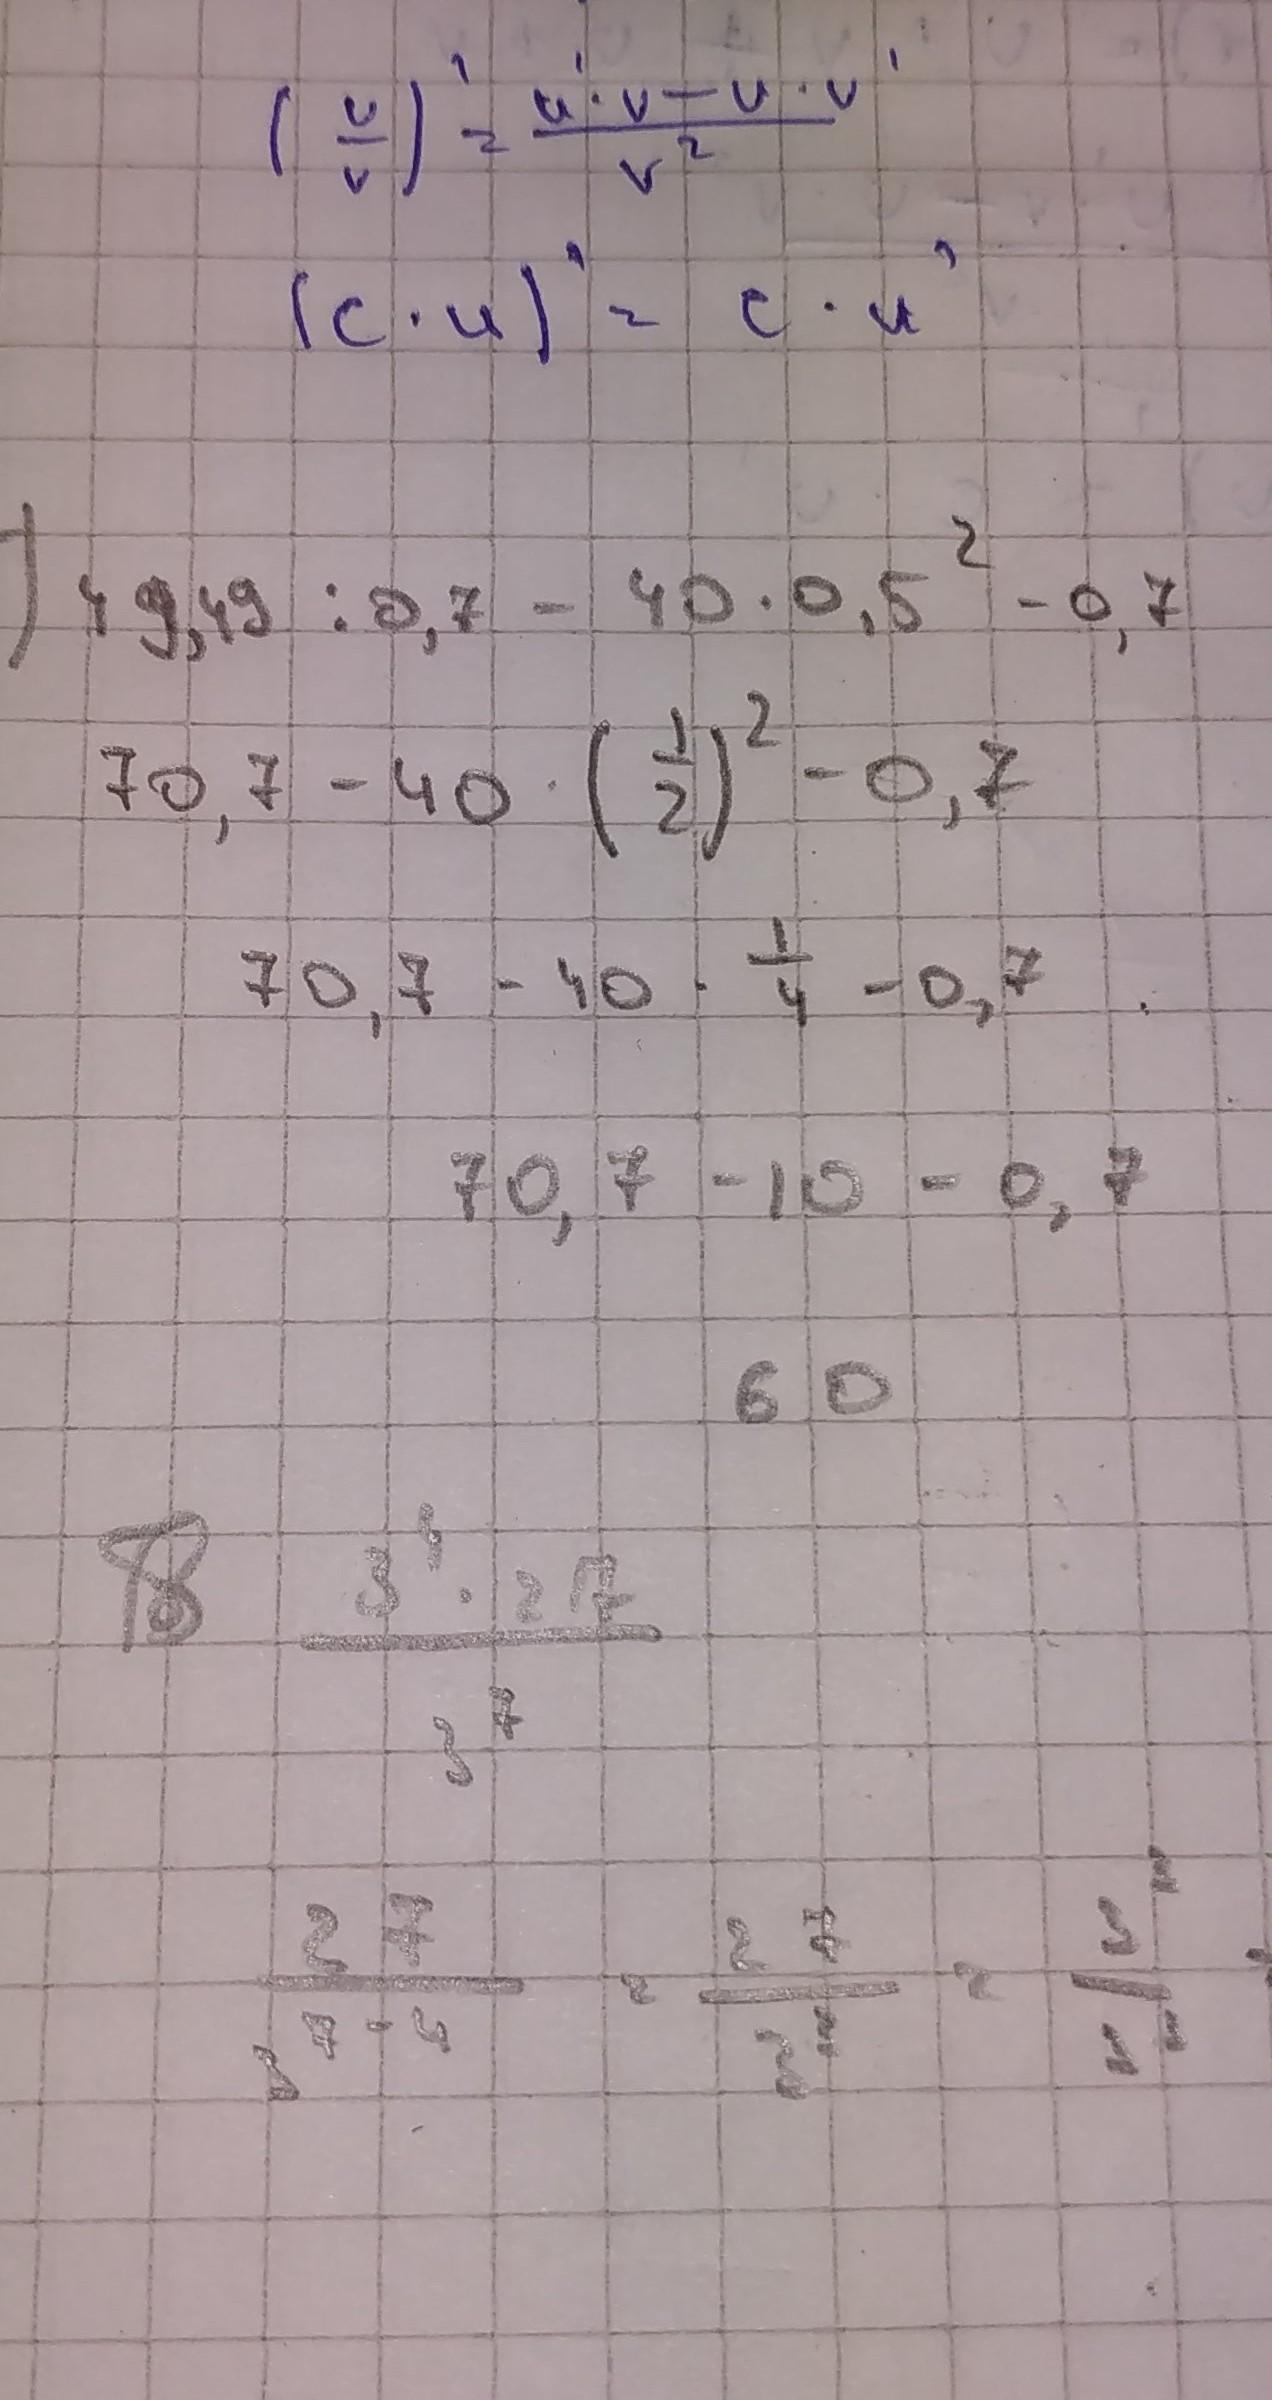 (u/v)' = (u'·v - u·v')/v²
(c·u)' = c·u'
) 49,49 : 0,7 - 40·0,5² - 0,7
70,7 - 40·(1/2)² - 0,7
70,7 - 40·1/4 - 0,7
70,7 - 10 - 0,7
60
(3⁴·27)/3⁷
27/3⁷⁻⁴ = 27/3³ = 3³/3³ =